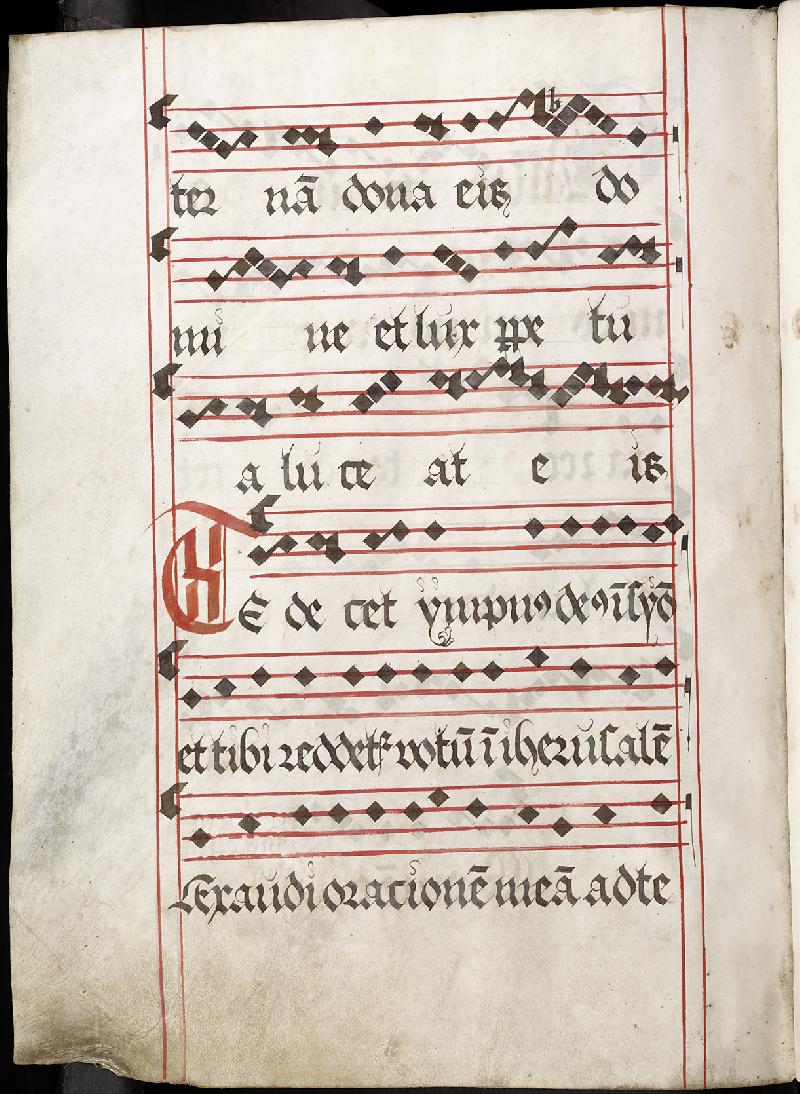 ter nā dona eis do
mi ne et lux ꝑpe tu
a lu ce at e is
TE de cet ympnꝰ deꝰ ī syō
et tibi reddetꝭ votū ī iherusalē
Exaudi oracionē meā ad te